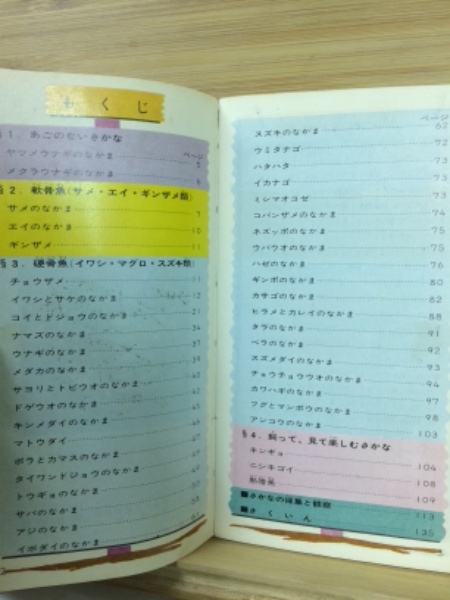 もくじ
§1. あごのないさかな
ページ
ヤツメウナギのなかま 5
メクラウナギのなかま 6
§2. 軟骨魚(サメ・エイ・ギンザメ類)
サメのなかま 7
エイのなかま 10
ギンザメ 11
§3. 硬骨魚(イワシ・マグロ・スズキ類)
チョウザメ 11
イワシとサケのなかま 12
コイとドジョウのなかま 21
ナマズのなかま 34
ウナギのなかま 37
メダカのなかま 39
サヨリとトビウオのなかま 42
ドゲウオのなかま 45
キンメダイのなかま
マトウダイ 47
ボラとカマスのなかま 47
タイワンドジョウのなかま
トウギョのなかま
サバのなかま
アジのなかま
イボダイのなかま
ページ
スズキのなかま 62
ウミタナゴ 72
ハタハタ 73
イカナゴ 73
ミシマオコゼ 73
コバンザメのなかま 74
ネズッポのなかま 75
ウバウオのなかま 75
ハゼのなかま 76
ギンポのなかま 80
カサゴのなかま 82
ヒラメとカレイのなかま 88
タラのなかま 91
ベラのなかま 92
スズメダイのなかま 93
チョウチョウウオのなかま 94
カワハギのなかま 97
フグとマンボウのなかま 98
アンコウのなかま 103
§4. 飼って、見て楽しむさかな
キンギョ 104
ニシキゴイ 108
熱帯魚 109
■さかなの採集と観察 113
■さくいん 135